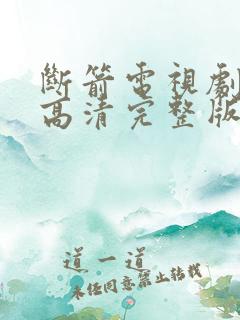 斷箭電視劇
高清完整版
道一道
未任同意禁止转载